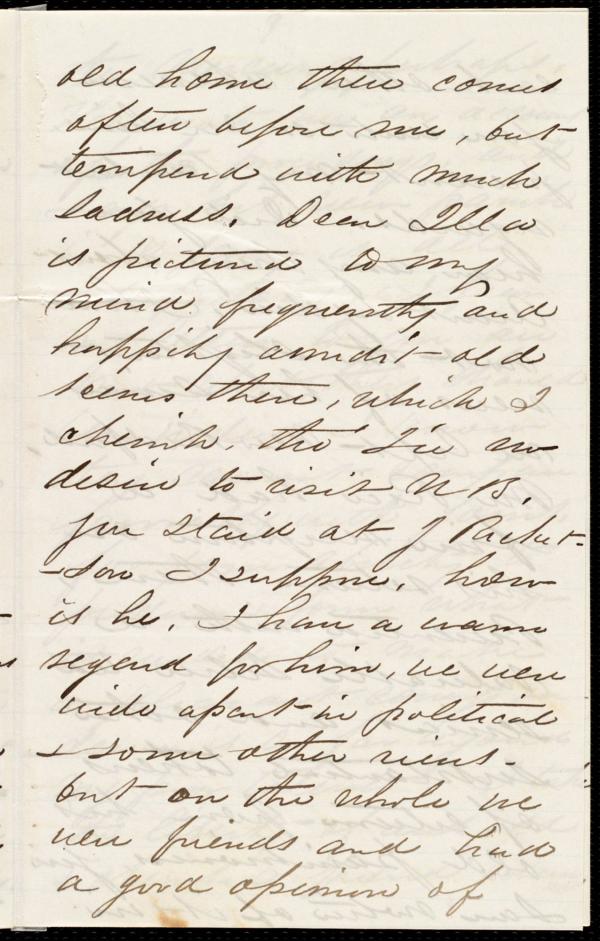 old home there comes
often before me, but
tempered with much
sadness. Dear Illa
is pictured to my
mind frequently and
happily amidst old
scenes there, which I
cherish, tho' I've no
desire to visit N B.
you staid at J Ricket-
-son I suppose, how
is he. I have a warm
regard for him, we were
wide apart in political
& some other views -
but on the whole we
were friends and had
a good opinion of